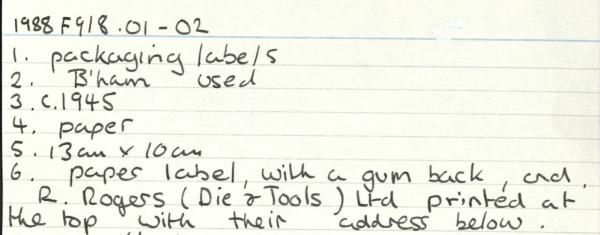 1988 F918.01-02
1. packaging labels
2. B'ham used
3. c.1945
4. paper
5. 13cm x 10cm
6. paper label, with a gum back, and,
R. Rogers (Die & Tools) Ltd printed at
the top with their address below.